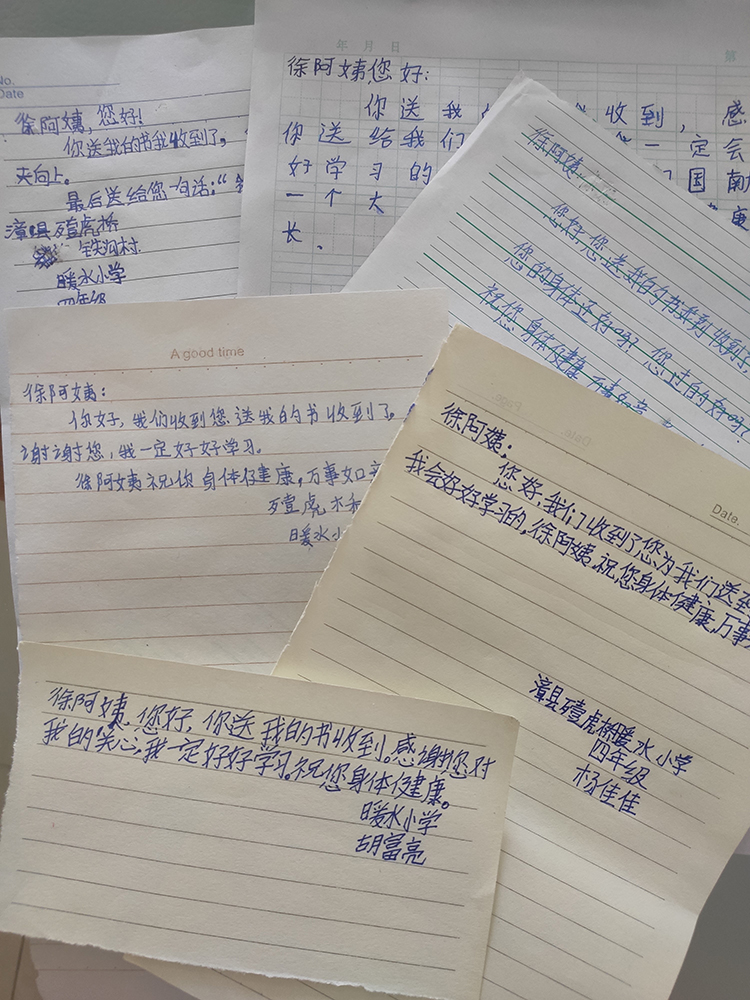 No.
Date
徐阿姨，您好！
你送我的书我收到了，
夹向上。
最后送给您一句话："
漳县殪虎桥
铁沟村
暖水小学
四年级
年 月 日
第
徐阿姨您好：
你送我 收到，感
你送给我们 一定会
好学习的 国南
一个大 康
长.
徐阿姨
您好，您送我的书我收到
您的身体还好吗？您过的好吗？
祝您身体健康 万事如意
A good time
徐阿姨：
你好，我们收到您送我的书收到了。
谢谢您，我一定好好学习。
徐阿姨祝你身体健康，万事如意
殪虎
暖水小
Date.
徐阿姨：
您好，我们收到了您为我们送到
我会好好学习的，徐阿姨，祝您身体健康，万事
漳县殪虎桥暖水小学
四年级
杨佳佳
徐阿姨，您好，你送我的书收到。感谢您对
我的关心，我一定好好学习。祝您身体健康。
暖水小学
胡富亮